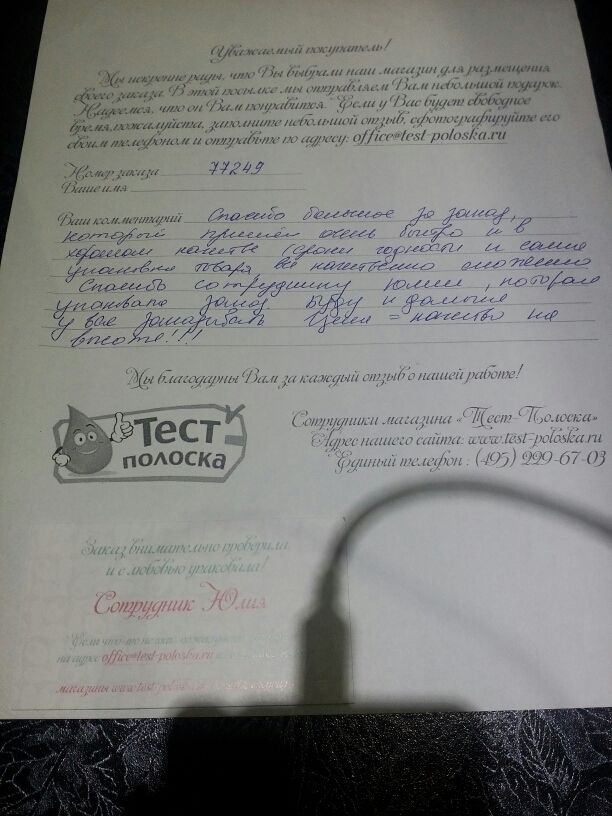 Уважаемый покупатель!
Мы искренне рады, что Вы выбрали наш магазин для размещения
своего заказа. В этой посылке мы отправляем Вам небольшой подарок.
Надеемся, что он Вам понравится. Если у Вас будет свободное
время, пожалуйста, заполните небольшой отзыв, сфотографируйте его
своим телефоном и отправьте по адресу: office@test-poloska.ru
Номер заказа 77249
Ваше имя
Ваш комментарий Спасибо большое за заказ,
который пришёл очень быстро и в
хорошем качестве (сроки годности и сами
упаковки товара все качественно сложено
Спасибо сотруднику Юлии, которая
упаковала заказ. Буду и дальше
у вас заказывать Цена = качество на
высоте!!!
Мы благодарны Вам за каждый отзыв о нашей работе!
Тест
полоска
Сотрудники магазина «Тест-Полоска»
Адрес нашего сайта: www.test-poloska.ru
Единый телефон: (495) 229-67-03
Заказ внимательно проверила
и с любовью упаковала!
Сотрудник Юлия
Если что-то не так
на адрес office@test-poloska.ru
магазины www.test-poloska.ru